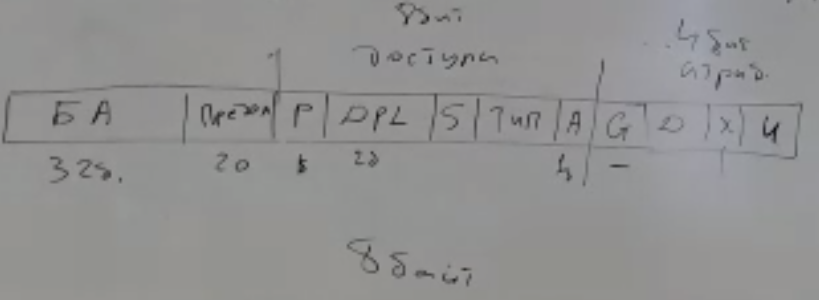 8 бит
доступа
4 бит
атриб.
БА Предел P DPL S Тип A G D X U
32б. 20 1 2б 4 -
8 байт